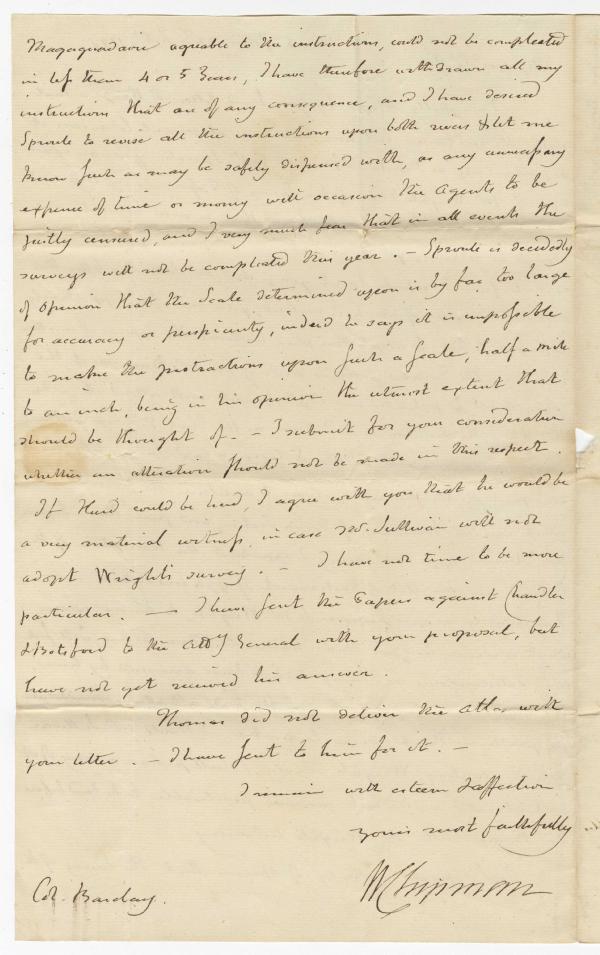 Magaguadavic agreable to the instructions, could not be compleated
in less than 4 or 5 Years, I have therefore withdrawn all my
instructions that are of any consequence, and I have desired
Sproule to revise all the instructions upon both rivers & let me
know such as may be safely dispensed with, as any unnecessary
expense of time or money will occasion the Agents to be
justly censured, and I very much fear that in all events the
surveys will not be compleated this year. — Sproule is decidedly
of opinion that the Scale determined upon is by far too large
for accuracy or perspicuity, indeed he says it is impossible
to make the protractions upon such a Scale, half a mile
to an inch, being in his opinion the utmost extent that
should be thought of. — I submit for your consideration
whether an alteration should not be made in this respect.
If Hurd could be had, I agree with you that he would be
a very material witness, in case Mr. Sullivan will not
adopt Wright's survey. — I have not time to be more
particular. — I have sent the Papers against Chandler
& Botsford to the Atty General with your proposal, but
have not yet received his answer.
Thomas did not deliver the Atlas with
your letter. — I have sent to him for it. —
I remain with esteem & affection
yours most faithfully
W Chipman
Col. Barclay.